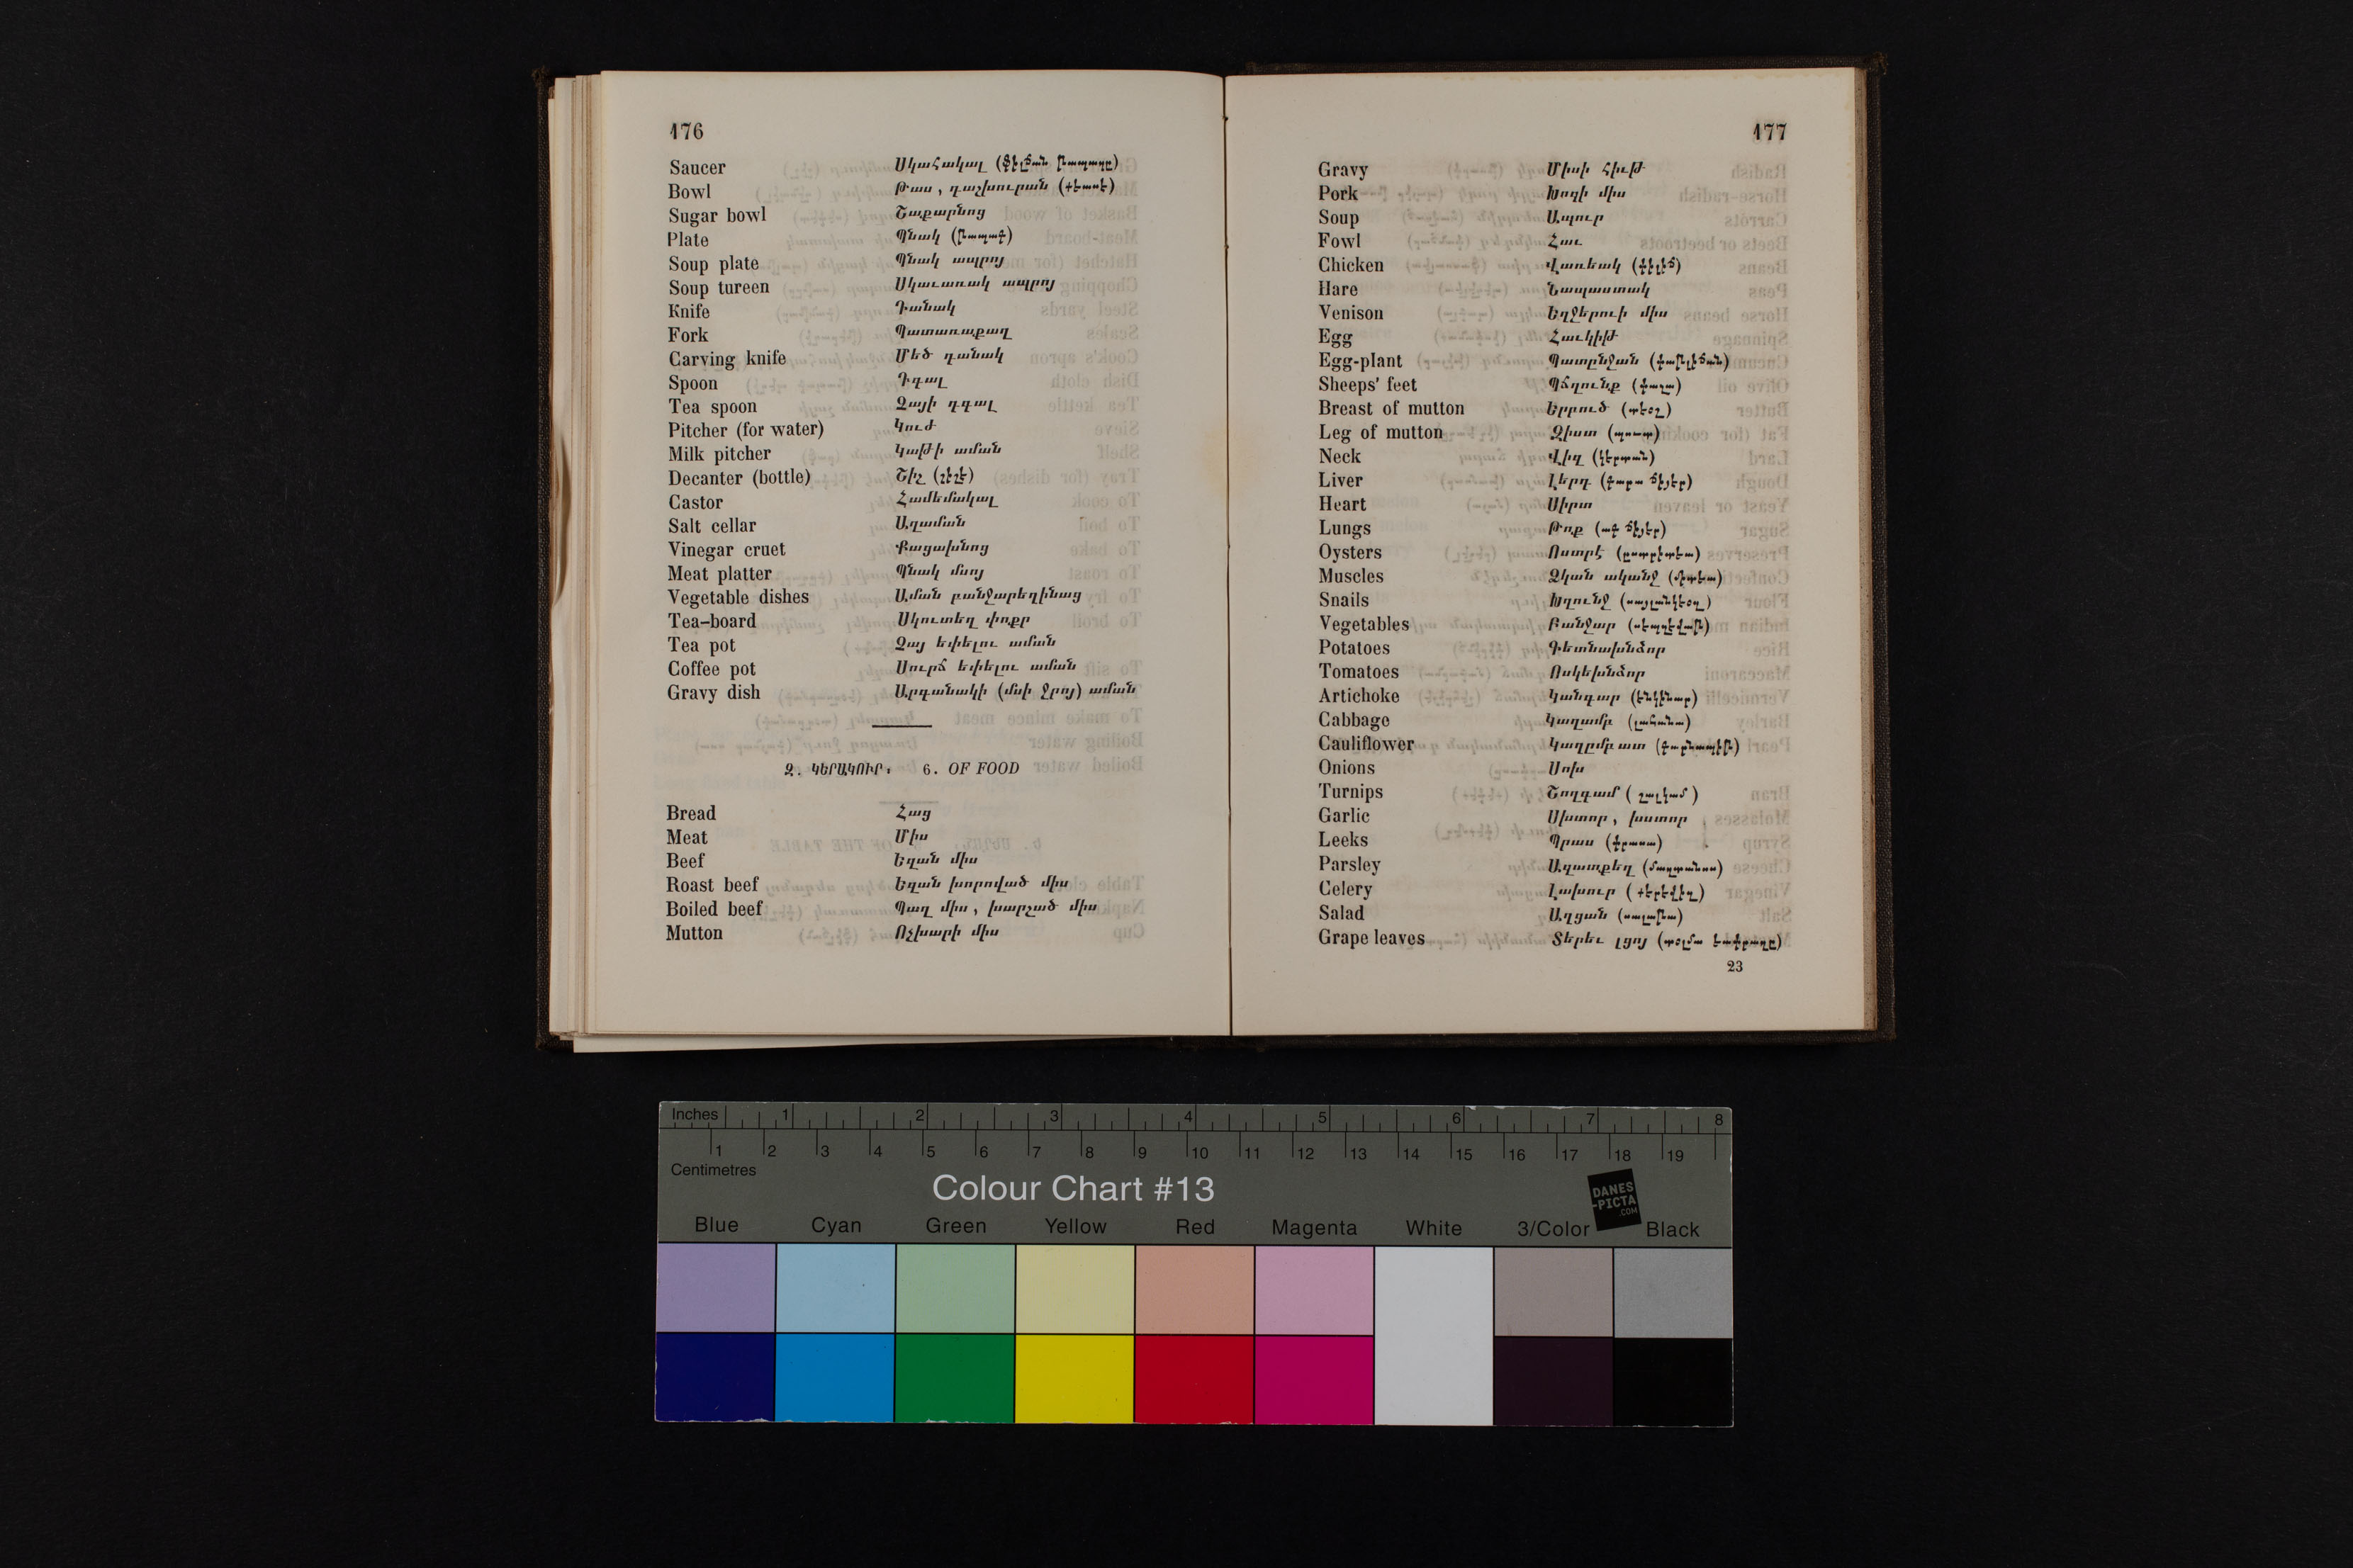 176
Saucer Սկահակալ (ֆիլճան թապաղը)
Bowl Թաս, դաշխուրան (քեասէ)
Sugar bowl Շաքարնոց
Plate Պնակ (թապաք)
Soup plate Պնակ ապրոյ
Soup tureen Սկաւառակ ապրոյ
Knife Դանակ
Fork Պատառաքաղ
Carving knife Մեծ դանակ
Spoon Դգալ
Tea spoon Չայի դգալ
Pitcher (for water) Կուժ
Milk pitcher Կաթի աման
Decanter (bottle) Շիշ (շիշէ)
Castor Համեմակալ
Salt cellar Աղաման
Vinegar cruet Քացախնոց
Meat platter Պնակ մսոյ
Vegetable dishes Աման բանջարեղինաց
Tea-board Սկուտեղ փոքր
Tea pot Չայ եփելու աման
Coffee pot Սուրճ եփելու աման
Gravy dish Արգանակի (մսի ջրոյ) աման
Զ. ԿԵՐԱԿՈՒՐ։ 6. OF FOOD
Bread Հաց
Meat Միս
Beef Եզան միս
Roast beef Եզան խորոված միս
Boiled beef Պաղ միս, խարշած միս
Mutton Ոչխարի միս
177
Gravy Միսի հիւթ
Pork Խոզի միս
Soup Ապուր
Fowl Հաւ
Chicken Վառեակ (փիլիճ)
Hare Նապաստակ
Venison Եղջերուի միս
Egg Հաւկիթ
Egg-plant Պատընջան (փաթլըճան)
Sheeps' feet Պճղունք (փաչա)
Breast of mutton Երբուծ (տէօշ)
Leg of mutton Զիստ (պուտ)
Neck Վիզ (կերտան)
Liver Լերդ (քարա ճիյեր)
Heart Սիրտ
Lungs Թոք (աք ճիյեր)
Oysters Ոստրէ (ըստրիտեա)
Muscles Ձկան ականջ (միտեա)
Snails Խղունջ (սալեանկէօզ)
Vegetables Բանջար (սեպզեվաթ)
Potatoes Գետնախնձոր
Tomatoes Ոսկեխնձոր
Artichoke Կանգար (էնկինար)
Cabbage Կաղամբ (լահանա)
Cauliflower Կաղըմբատ (քարնապիթ)
Onions Սոխ
Turnips Շողգամ (շալկամ)
Garlic Սխտոր, խստոր
Leeks Պրաս (փրասա)
Parsley Ազատքեղ (մաղտանոս)
Celery Լախուր (քերեվիզ)
Salad Աղցան (սալաթա)
Grape leaves Տերեւ լցոյ (տօլմա եափրաղը)
23
Inches 1 2 3 4 5 6 7 8
1 2 3 4 5 6 7 8 9 10 11 12 13 14 15 16 17 18 19
Centimetres
Colour Chart #13
DANES
-PICTA
.COM
Blue Cyan Green Yellow Red Magenta White 3/Color Black